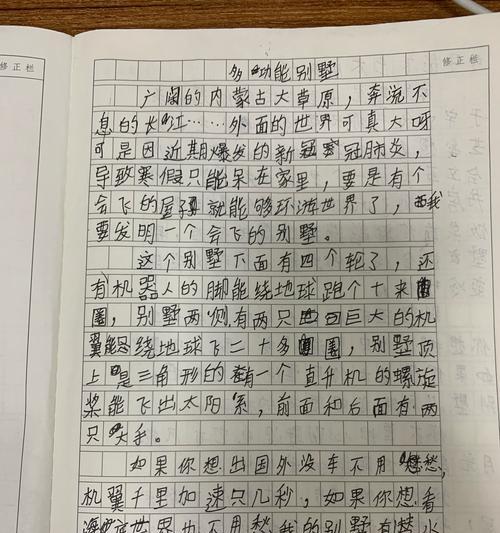 修正栏
修正栏
多功能别墅
广阔的内蒙古大草原，奔流不
息的长江……外面的世界可真大呀
可是因近期爆发的新冠冠肺炎，
导致寒假只能呆在家里，要是有个
会飞的屋子就能够环游世界了，我
要发明一个会飞的别墅。
这个别墅下面有四个轮了，还
有机器人的脚能绕地球跑个十来圈
圈，别墅两侧有两只巨大的机
翼能绕地球飞二十多圈，别墅顶
上是三角形的有一个直升机的螺旋
桨能飞出太阳系，前面和后面有两
只大手。
如果你想出国外没车不用愁，
机翼千里加速只几秒，如果你想看
海底世界也不用愁我的别墅有潜水